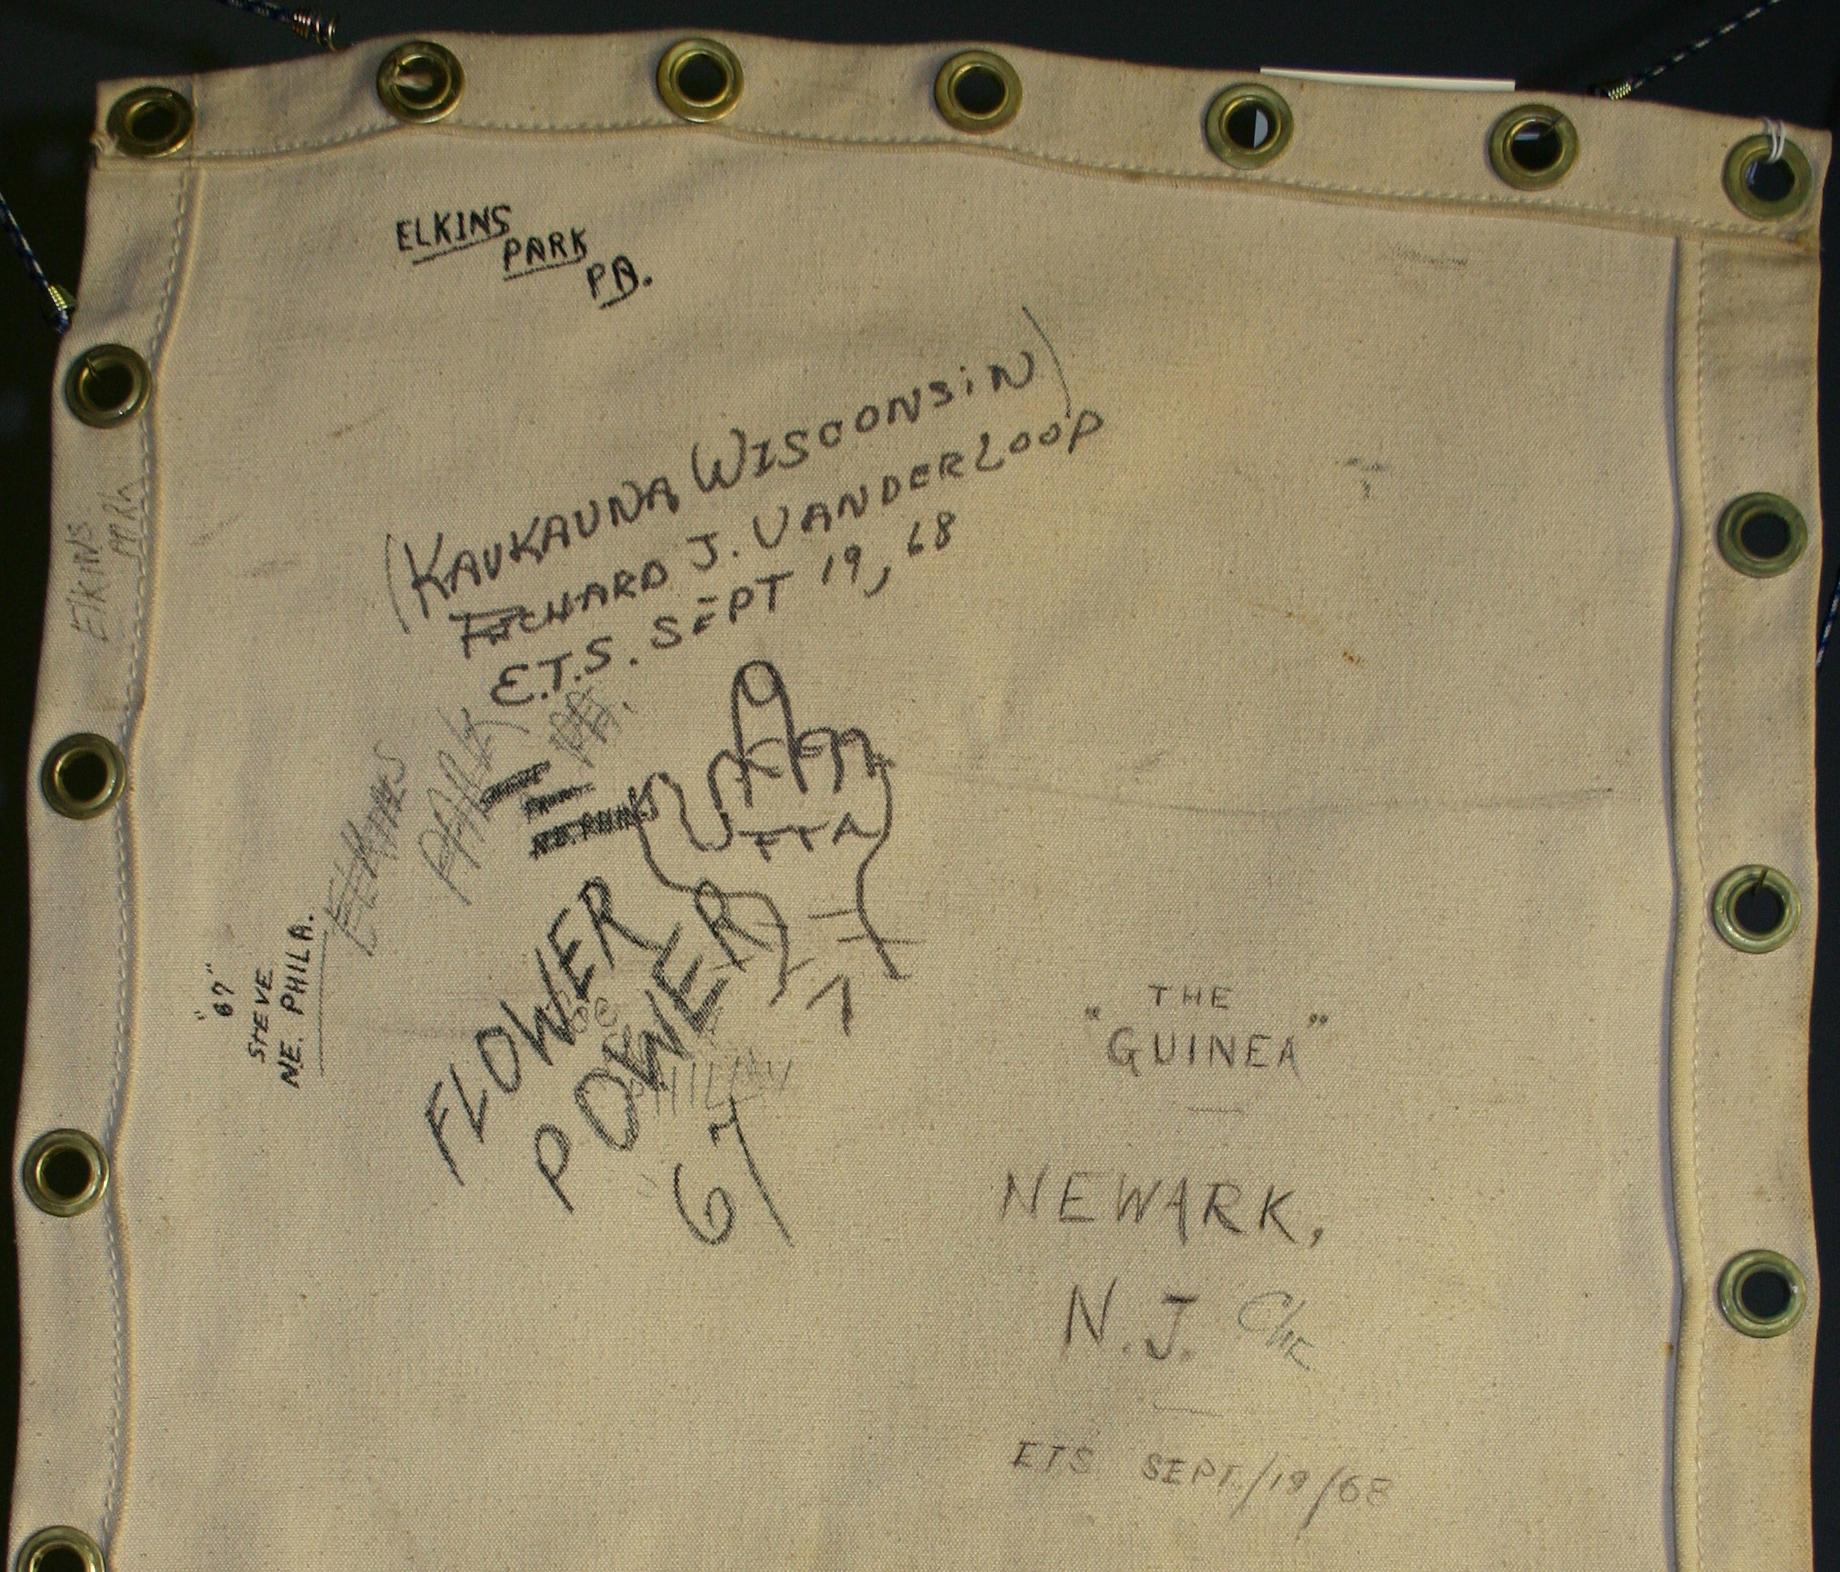 ELKINS
PARK
PA.
(KAUKAUNA WISCONSiN)
RICHARD J. VANDERLOOP
E.T.S. SEPT 19, 68
ElKINS
PARK
ELKINS
PARK
PA.
NE. PHILA
FTA
"67"
STEVE
NE. PHILA.
FLOWER
POWER
67
"THE
GUINEA"
NEWARK,
N.J.
ETS SEPT./19/68